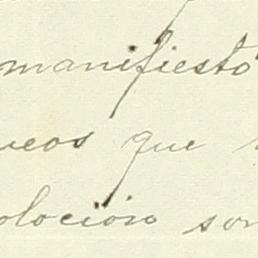 manifiesto
ueos que
olocion son